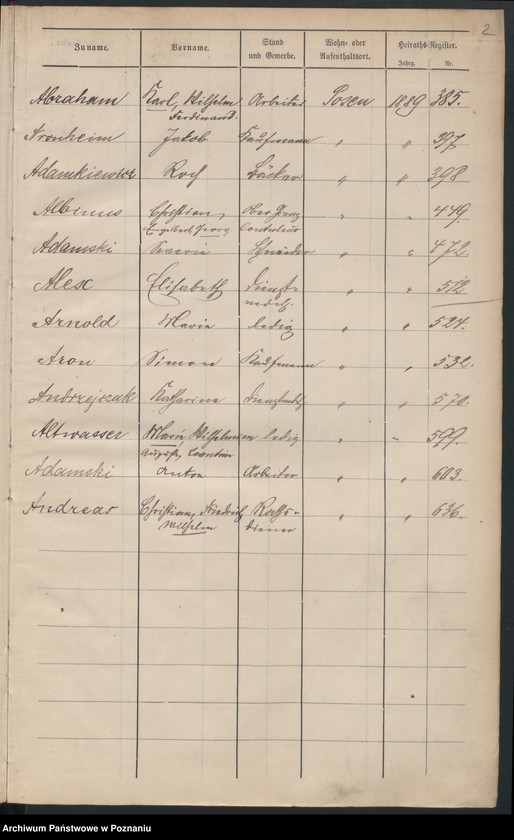 2
Zuname. Vorname. Stand und Gewerbe. Wohn- oder Aufenthaltsort. Heiraths-Register.
Jahrg. Nr.
Abraham Karl, Wilhelm Arbeiter Posen 1889 385.
Ferdinand.
Aronheim Jakob Kaufmann " " 397
Adamkiewicz Roch Bäcker " " 398
Albinus Christian, Ober Grenz " " 449.
Engelbert, Georg Controleur
Adamski Schneider " " 472.
Alex Elisabeth Dienst- " " 512
mdch.
Arnold Marie ledig " " 524.
Aron Simon Kaufmann " " 532.
Andrzejczak Katharina Dienstmdch " " 570.
Altwasser Marie Wilhelmine ledig " " 599.
Auguste
Adamski Anton Arbeiter " " 603.
Andreas Christian, Friedrich Raths- " " 636.
Wilhelm diener
Archiwum Państwowe w Poznaniu